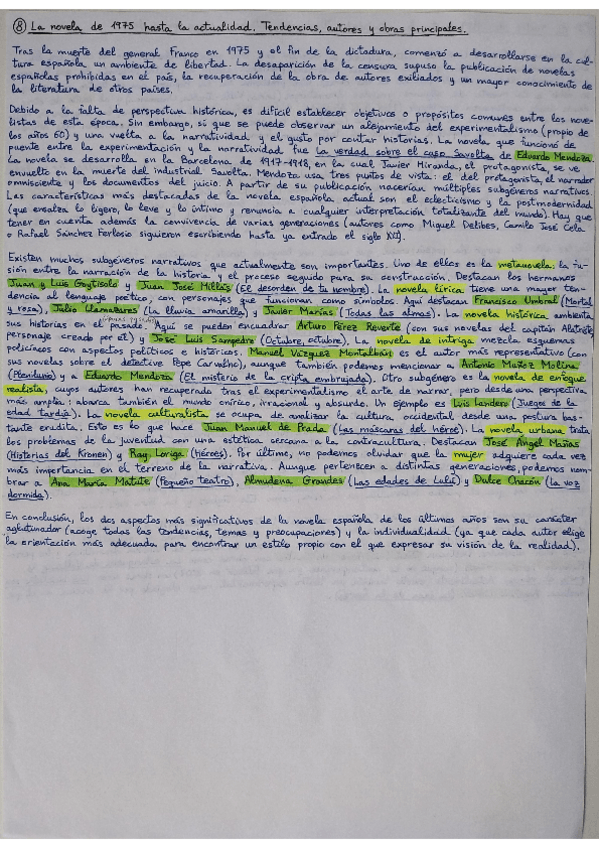 ⑧ La novela de 1975 hasta la actualidad. Tendencias, autores y obras principales.
Tras la muerte del general Franco en 1975 y el fin de la dictadura, comenzó a desarrollarse en la cul-
tura española un ambiente de libertad. La desaparición de la censura supuso la publicación de novelas
españolas prohibidas en el país, la recuperación de la obra de autores exiliados y un mayor conocimiento de
la literatura de otros países.
Debido a la falta de perspectiva histórica, es difícil establecer objetivos o propósitos comunes entre los nove-
listas de esta época. Sin embargo, sí que se puede observar un alejamiento del experimentalismo (propio de
los años 60) y una vuelta a la narratividad y el gusto por contar historias. La novela que funcionó de
puente entre la experimentación y la narratividad fue La verdad sobre el caso Savolta de Eduardo Mendoza.
La novela se desarrolla en la Barcelona de 1917-1918, en la cual Javier Miranda, el protagonista, se ve
envuelto en la muerte del industrial Savolta. Mendoza usa tres puntos de vista: el del protagonista, el narrador
omnisciente y los documentos del juicio. A partir de su publicación nacerían múltiples subgéneros narrativos.
Las características más destacadas de la novela española actual son el eclecticismo y la postmodernidad
(que ensalza lo ligero, lo leve y lo íntimo y renuncia a cualquier interpretación totalizante del mundo). Hay que
tener en cuenta además la convivencia de varias generaciones (autores como Miguel Delibes, Camilo José Cela
o Rafael Sánchez Ferlosio siguieron escribiendo hasta ya entrado el siglo XXI).
Existen muchos subgéneros narrativos que actualmente son importantes. Uno de ellos es la metanovela: la fu-
sión entre la narración de la historia y el proceso seguido para su construcción. Destacan los hermanos
Juan y Luis Goytisolo y Juan José Millás (El desorden de tu nombre). La novela lírica tiene una mayor ten-
dencia al lenguaje poético, con personajes que funcionan como símbolos. Aquí destacan Francisco Umbral (Mortal
y rosa), Julio Llamazares (La lluvia amarilla) y Javier Marías (Todas las almas). La novela histórica ambienta
sus historias en el pasado. Aquí se pueden encuadrar Arturo Pérez Reverte (con sus novelas del capitán Alatriste,
personaje creado por él) y José Luis Sampedro (Octubre, octubre). La novela de intriga mezcla esquemas
policíacos con aspectos políticos e históricos. Manuel Vázquez Montalbán es el autor más representativo (con
sus novelas sobre el detective Pepe Carvalho), aunque también podemos mencionar a Antonio Muñoz Molina
(Plenilunio) y a Eduardo Mendoza (El misterio de la cripta embrujada). Otro subgénero es la novela de enfoque
realista, cuyos autores han recuperado tras el experimentalismo el arte de narrar, pero desde una perspectiva
más amplia: abarca también el mundo onírico, irracional y absurdo. Un ejemplo es Luis Landero (Juegos de la
edad tardía). La novela culturalista se ocupa de analizar la cultura occidental desde una postura bas-
tante erudita. Esto es lo que hace Juan Manuel de Prada (Las máscaras del héroe). La novela urbana trata
los problemas de la juventud con una estética cercana a la contracultura. Destacan José Ángel Mañas
(Historias del Kronen) y Ray Loriga (Héroes). Por último, no podemos olvidar que la mujer adquiere cada vez
más importancia en el terreno de la narrativa. Aunque pertenecen a distintas generaciones, podemos nom-
brar a Ana María Matute (Pequeño teatro), Almudena Grandes (Las edades de Lulú) y Dulce Chacón (La voz
dormida).
En conclusión, los dos aspectos más significativos de la novela española de los últimos años son su carácter
aglutinador (acoge todas las tendencias, temas y preocupaciones) y la individualidad (ya que cada autor elige
la orientación más adecuada para encontrar un estilo propio con el que expresar su visión de la realidad).